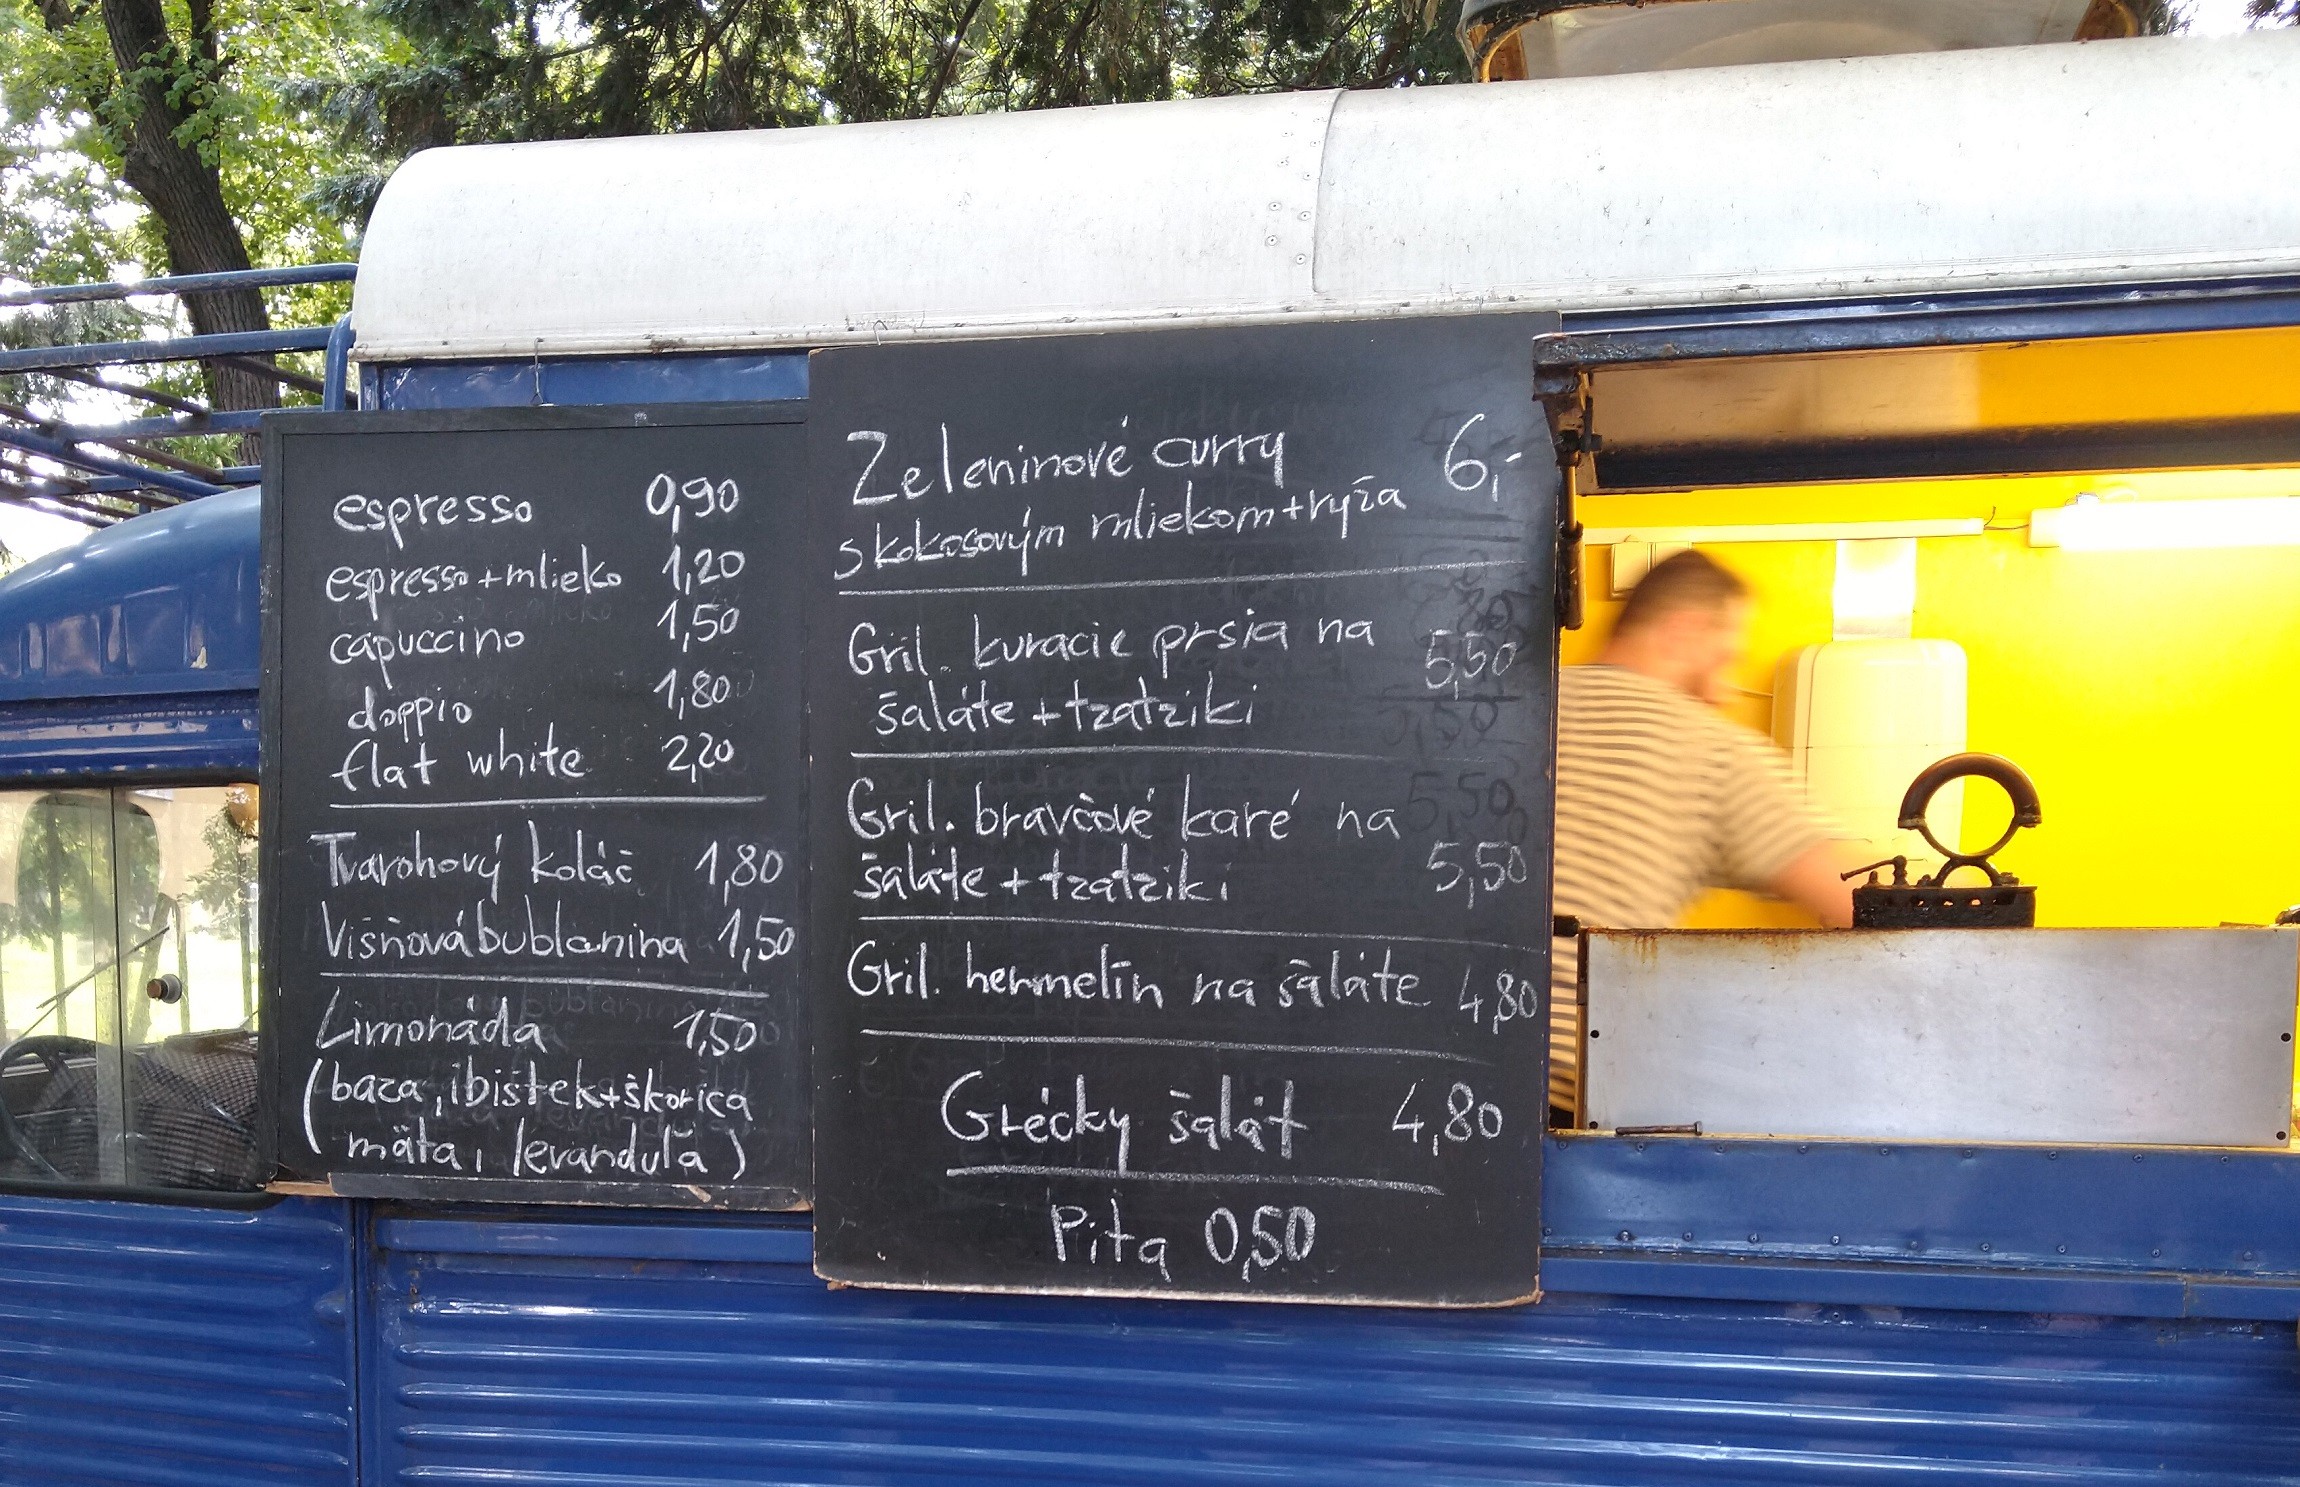 espresso 0,90
espresso+mlieko 1,20
capuccino 1,50
doppio 1,80
flat white 2,20
Tvarohový koláč 1,80
Višňová bublanina 1,50
Limonáda 1,50
(baza, ibištek+škorica
mäta, levanduľa)
Zeleninové curry 6,-
s kokosovým mliekom+ryža
Gril. kuracie prsia na 5,50
šaláte + tzatziki
Gril. bravčové karé na
šaláte + tzatziki 5,50
Gril. hermelín na šaláte 4,80
Grécky šalát 4,80
Pita 0,50